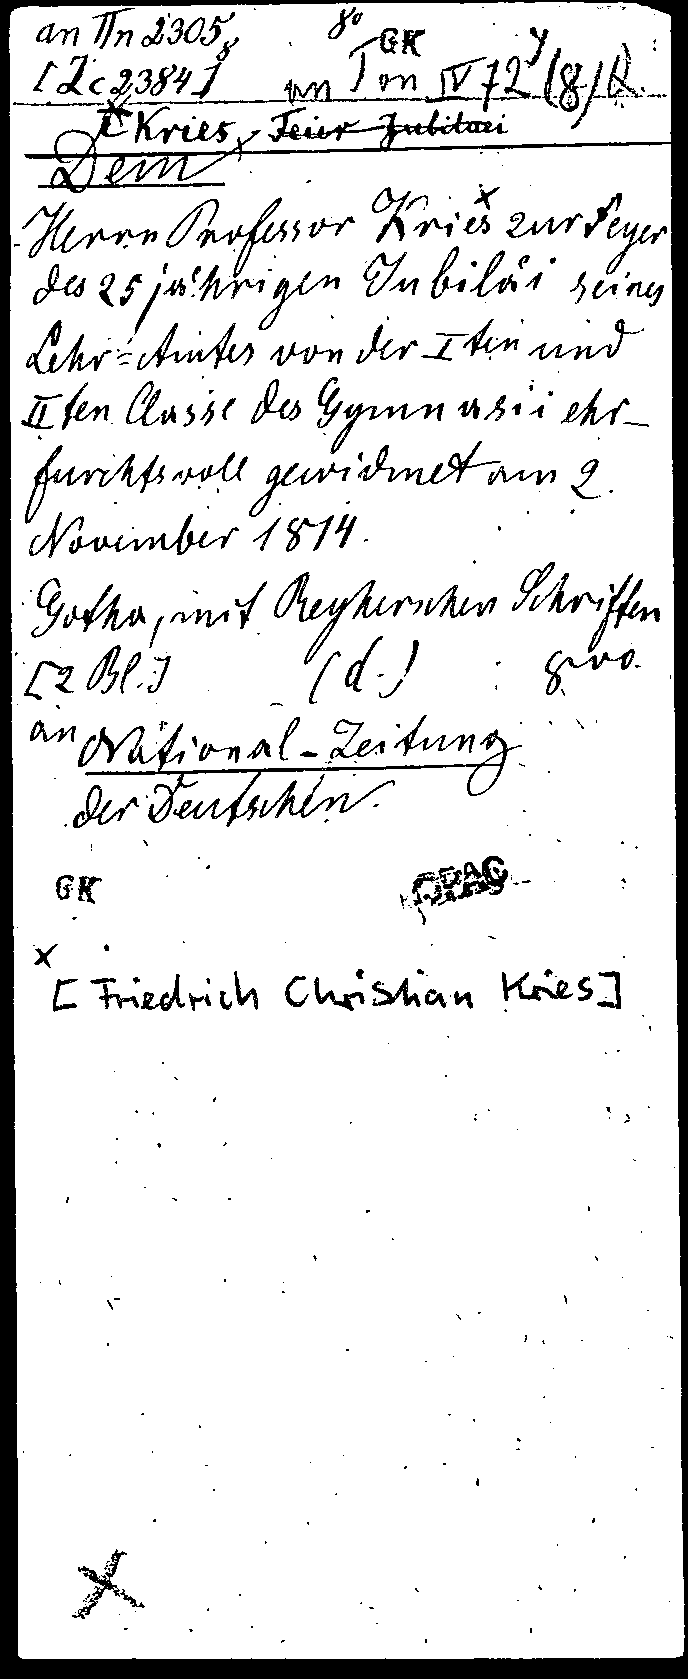 an IIn 2305 8° GK
[Zc 2384] an Ton IV 72 y (8) R.
Kries, Feier Jubilaei
Dem
Herrn Professor Kries x zur Feyer
des 25 jährigen Jubiläi seines
Lehr=Amtes von der Iten und
IIten Classe des Gymnasii ehr-
furchtsvoll gewidmet am 2.
November 1814.
Gotha, mit Reyherschen Schriften
[2 Bl.] (d.) 8vo.
an National-Zeitung
der Deutschen.
GK OPAC
x
[Friedrich Christian Kries]